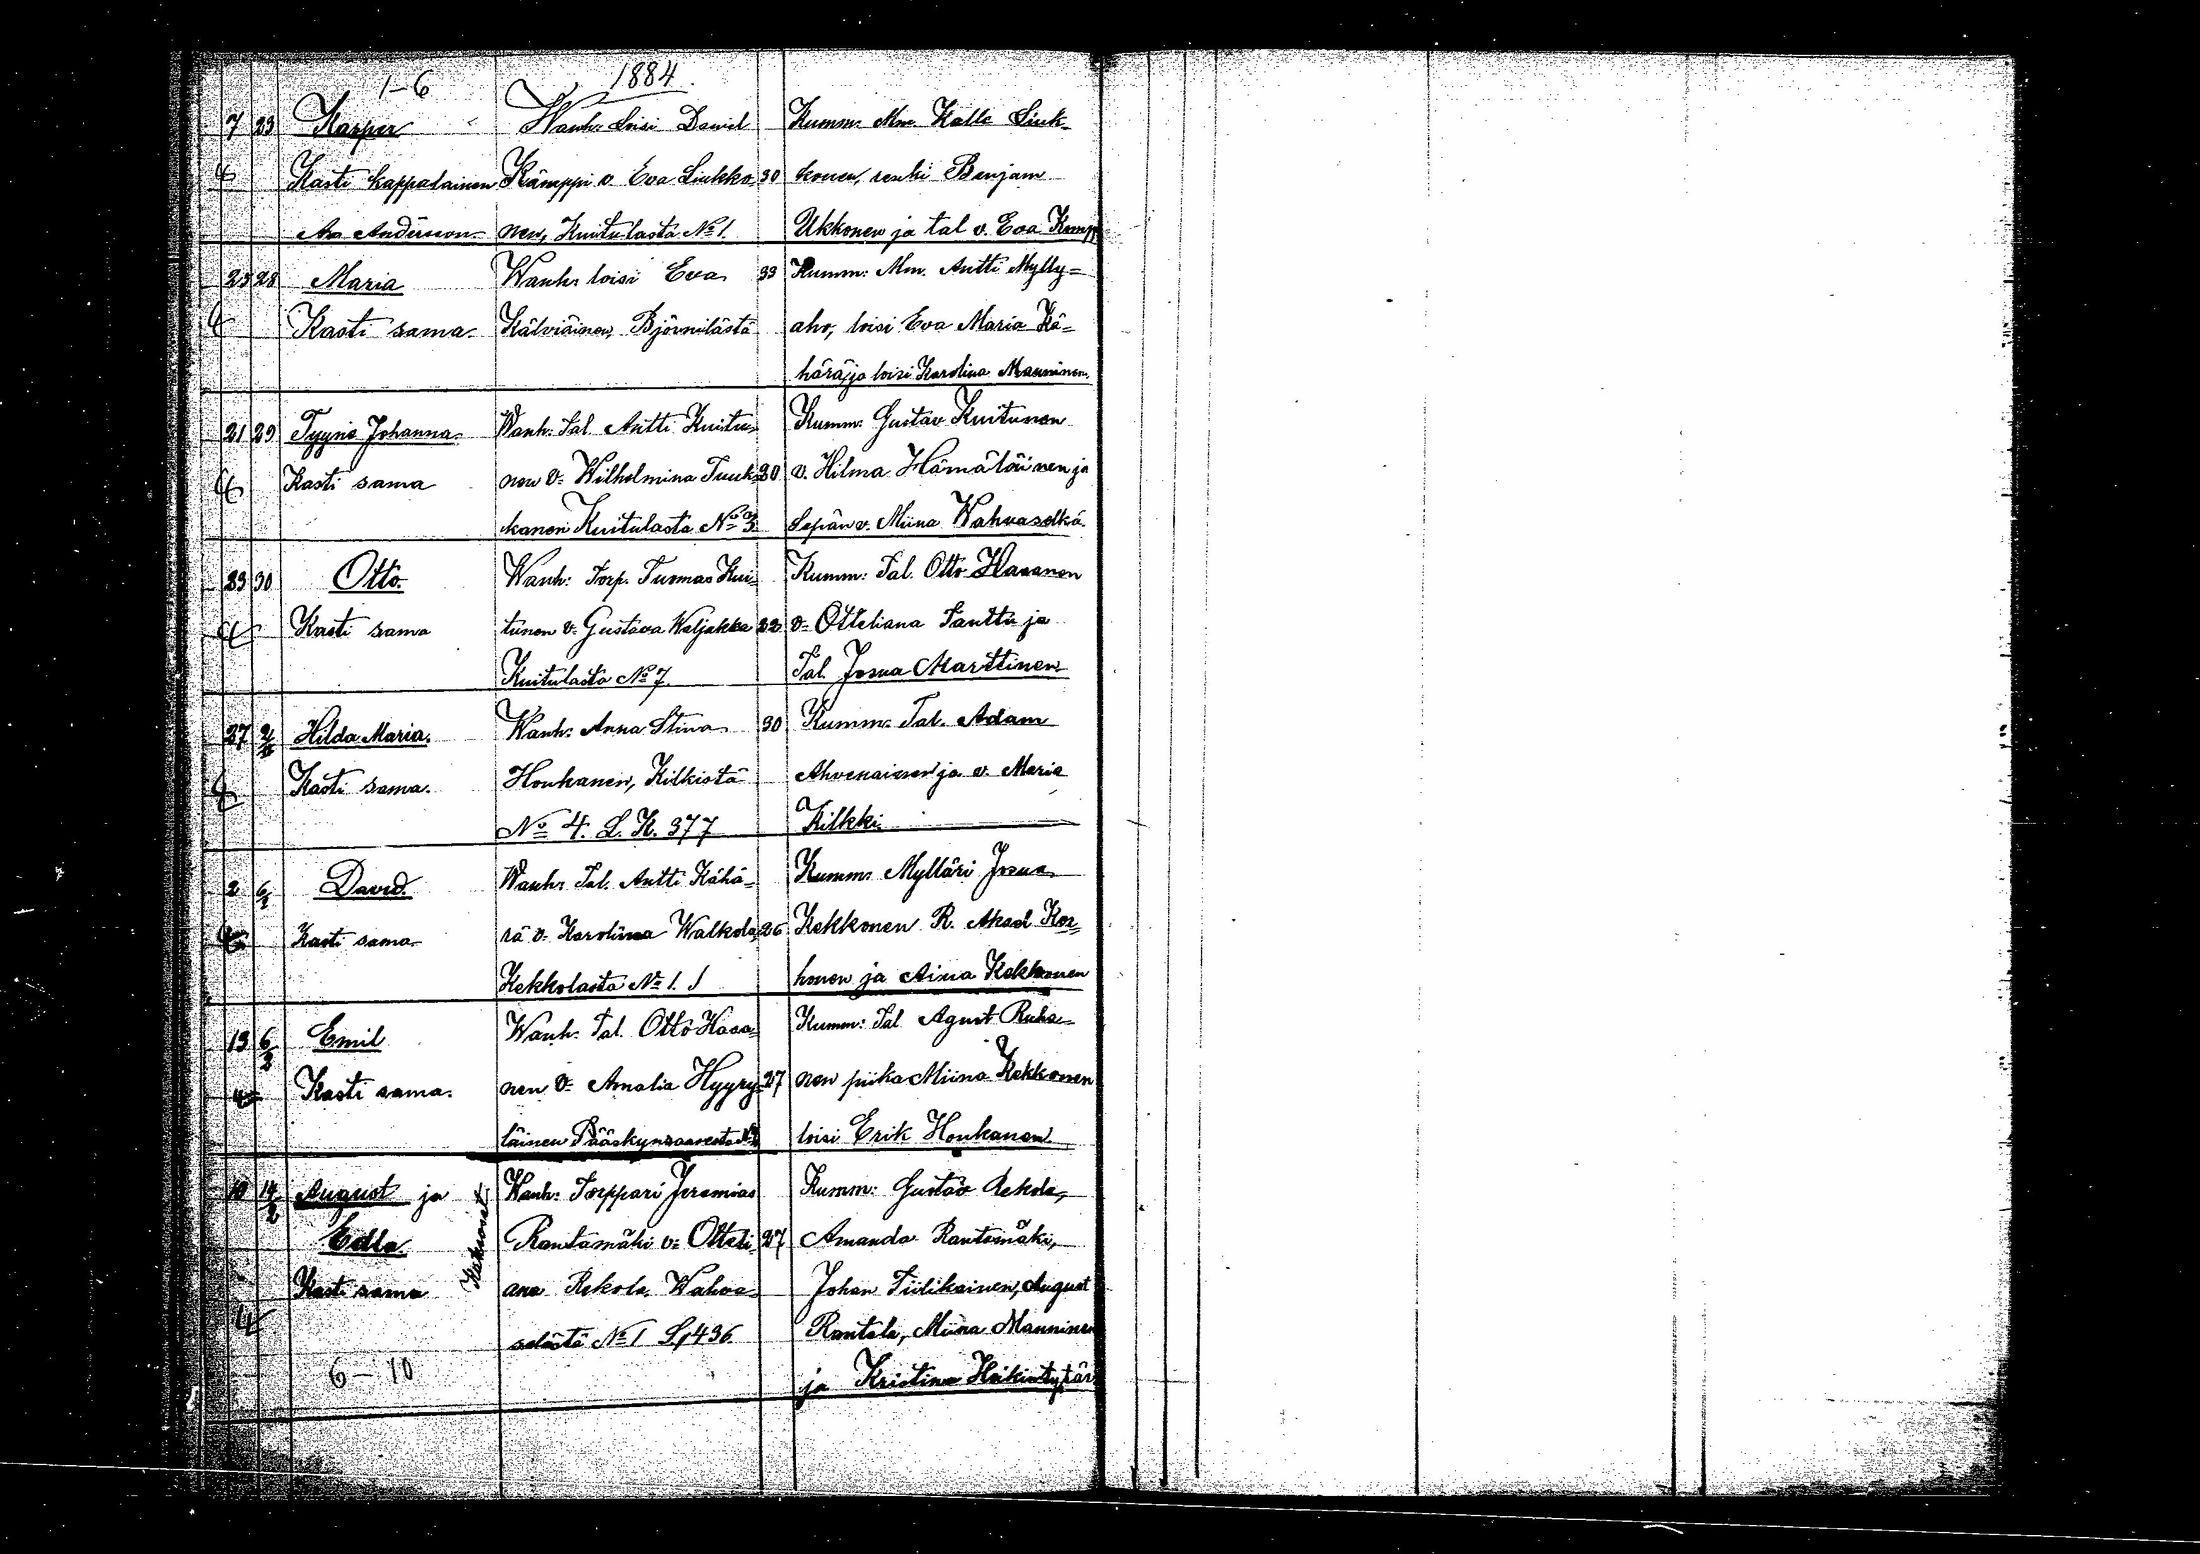 1-6 1884.
7 23 Kasper Wanh: Loisi David Kumm: Mm. Kalle Liuk-
Kasti kappalainen Kämppi v. Eva Liukko- 30 konen, renki Benjam
Aa Andersson nen, Kuitulasta No 1. Ukkonen ja tal v. Eva Kemp
25 28 Maria Wanh: loisi Eva 33 Kumm: Mm. Antti Mylly=
Kasti sama. Kälviäinen, Björnilästä aho, loisi Eva Maria Kä=
härä, ja loisi Karolina Manninen.
21 29 Tyyne Johanna Wanh: Tal. Antti Kuitu- Kumm: Gustav Kuitunen
Kasti sama nen v= Wilhelmina Tuuk- 30 v. Hilma Hämäläinen ja
kanen Kuitulasta No 3. Sepän v. Miina Wahvaselkä.
23 30 Otto. Wanh: Torp. Tuomas Kui- Kumm: Tal. Otto Hasanen
Kasti sama tunen v= Gustava Waljakka 22 v= Otteliana Tanttu ja
Kuitulasta No 7. Tal. Josua Marttinen
27 2/2 Hilda Maria. Wanh: Anna Stina 30 Kumm: Tal. Adam
Kasti sama. Honkanen, Kilkistä Ahvenainen ja v. Maria
No 4. L. K. 377 Kilkki.
2 6/2 David. Wanh: Tal. Antti Kähä- Kumm: Mylläri Josua
Kasti sama rä v. Karolina Walkola, 26 Kekkonen R. Aksel Kor-
Kekkolasta No 1. honen ja Aina Kekkonen
13 6/2 Emil Wanh: Tal. Otto Hasa- Kumm: Tal. Agust Ruha-
Kasti sama. nen v= Amalia Hyyry- 27 nen piika Miina Kekkonen
läinen Pääskynsaaresta loisi Erik Honkanen.
10 14/2 August ja Wanh: Torppari Jeremias Kumm: Gustav Rekola,
Edla Kaksoset Rantamäki v= Otteli- 27 Amanda Rantamäki,
Kasti sama ana Rekola. Wahva- Johan Tiilikainen, August
selästä No 1 L, 436. Rantala, Miina Manninen
6-10 ja Kristina Heikintytär